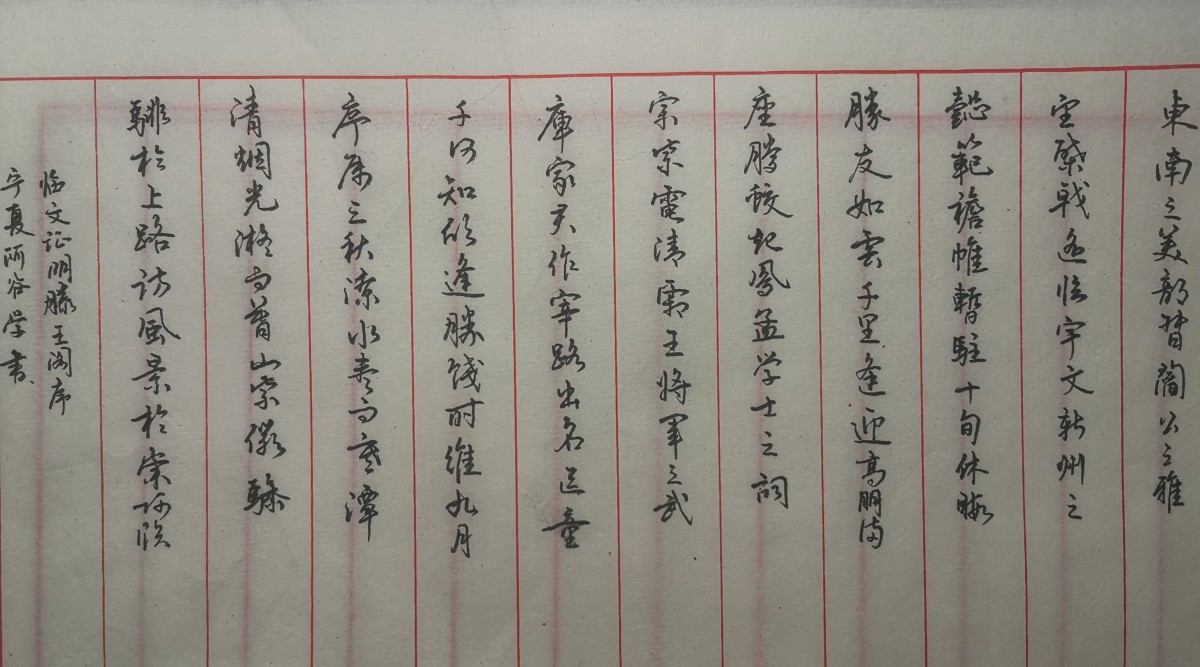 東南之美都督閻公之雅
望棨戟遥临宇文新州之
懿範襜帷暫駐十旬休暇
勝友如雲千里逢迎高朋满
座腾蛟起鳳孟学士之詞
宗紫電清霜王将軍之武
庫家君作宰路出名区童
子何知躬逢勝饯时維九月
序属三秋潦水尽而寒潭
清烟光凝而暮山紫儼骖
騑於上路訪風景於崇阿临
临文证明滕王阁序
宁夏阿谷学书